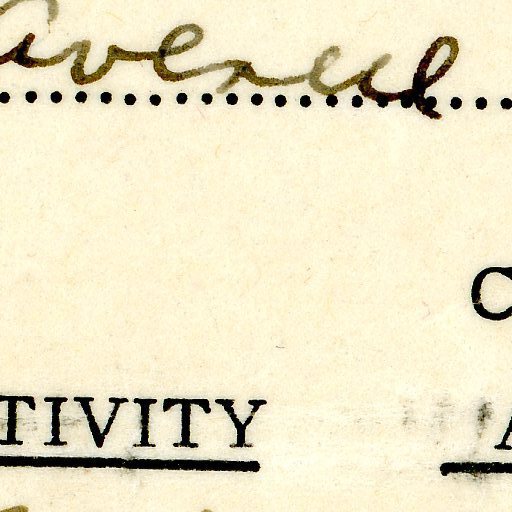 Avenue
C
TIVITY A